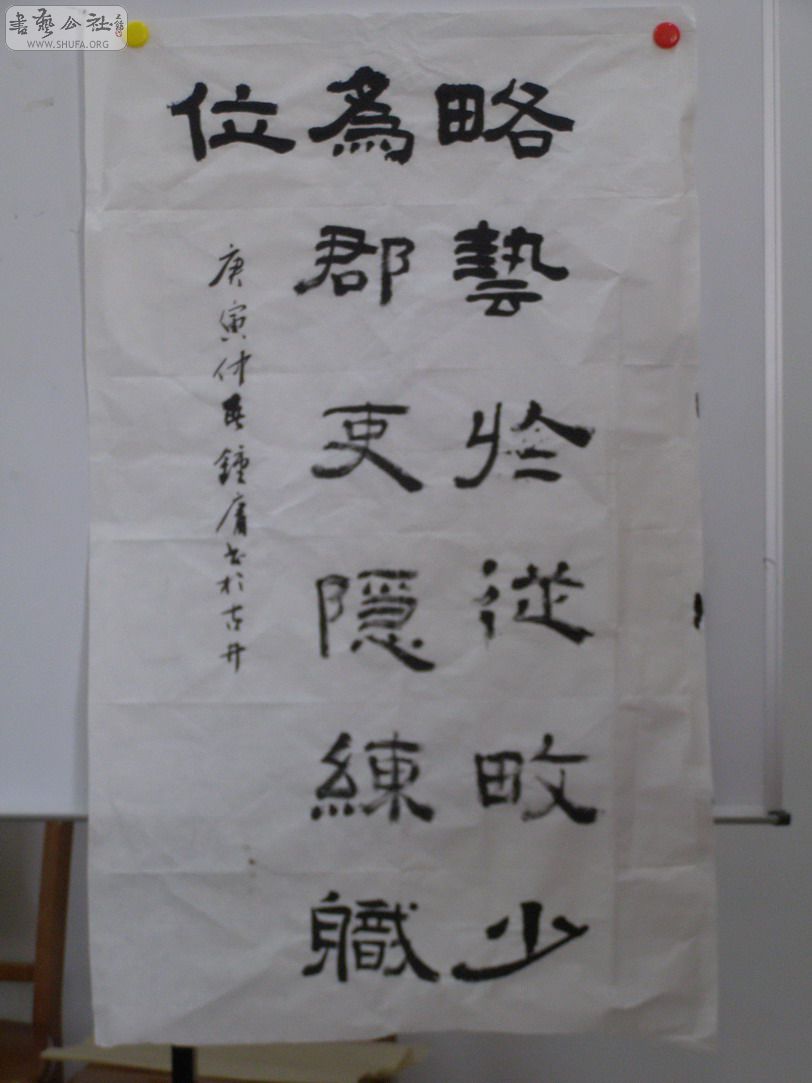 書藝公社
WWW.SHUFA.ORG
略藝於從畋少
為郡吏隱練職
位
庚寅仲春鐘庸書於古井